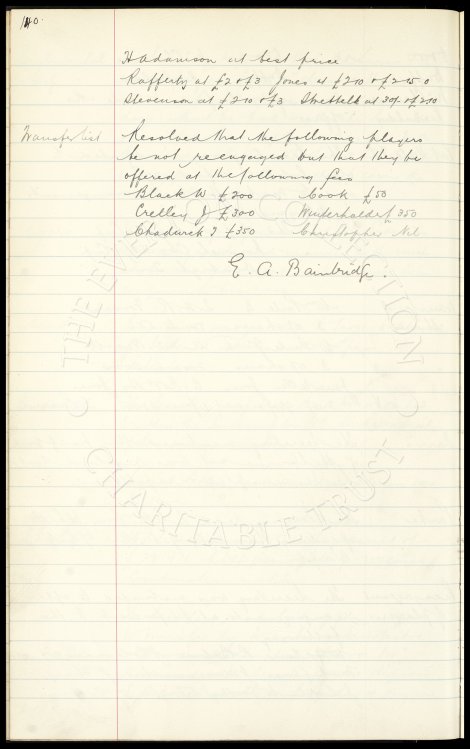 140.
H Adamson at best price
Rafferty at £2 & £3 Jones at £2-10 & £2-15-0
Stevenson at £2-10 & £3 Strettell at 30/- & £2-10
Transfer list
Resolved that the following players
be not reengaged but that they be
offered at the following fees
Black W £200 Cook £50
Crelley J £300 Winterhalder £350
Chadwick T £350 Christopher Nil
E. A. Bainbridge.
© THE EVERTON COLLECTION
CHARITABLE TRUST